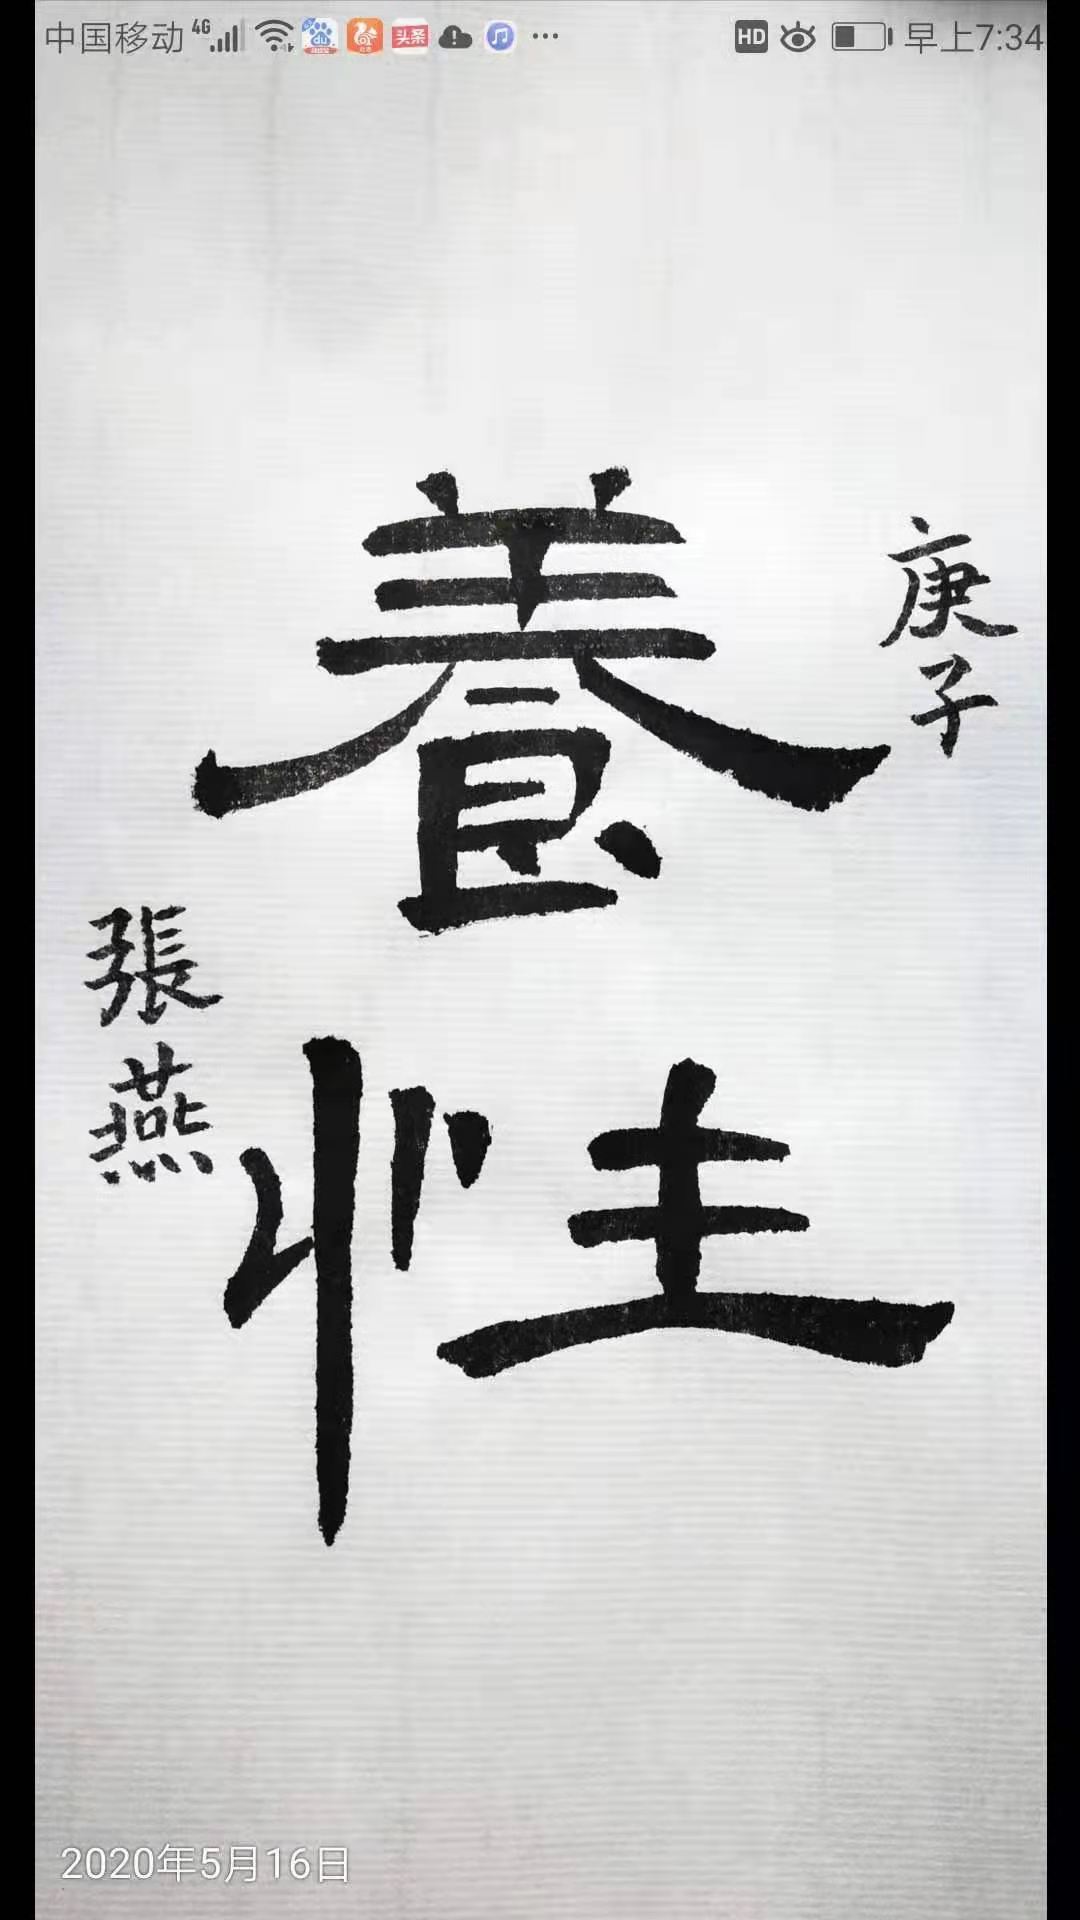 中国移动 4G HD 早上7:34
du
头条
庚子
養性
張燕
2020年5月16日